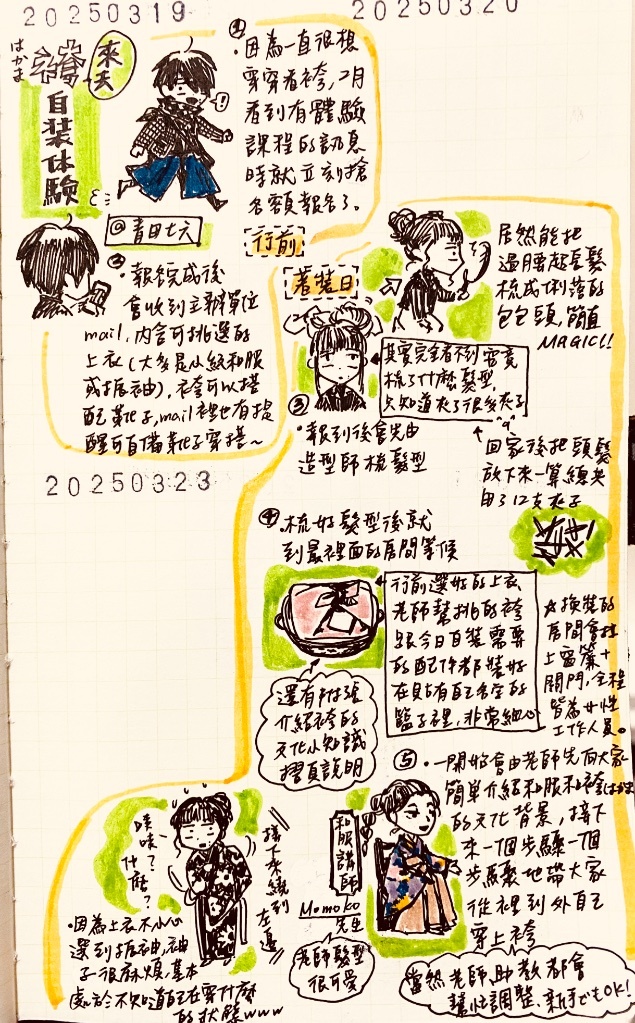 20250319
20250320
はかま
袴
來去
自装体験
@青田七六
①
・因為一直很想
穿穿看袴,2月
看到有體驗
課程的訊息
時就立刻搶
名額報名了。
行前
②
・報名完成後
會收到主辦單位
mail,內含可挑選的
上衣(大多是小紋和服
或振袖)。袴可以搭
配靴子,mail裡也有提
醒可自備靴子穿搭~
着裝日
居然能把
過腰超長髮
梳成俐落的
包包頭,簡直
MAGIC!!
其實完全看不到究竟
梳了什麼髮型,
只知道夾了很多夾子
③
・報到後會先由
造型師梳髮型
回家後把頭髮
放下來一算總共
用了12支夾子
20250323
④
・梳好髮型後就
到最裡面的房間等候
行前選好的上衣
老師幫挑的袴
跟今日自裝需要
的配件都裝好
在貼有自己名字的
籃子裡,非常細心
☆換裝的
房間會拉
上窗簾+
關門,全程
皆為女性
工作人員。
還有附張
介紹袴的
文化小知識
摺頁說明
⑤
・一開始會由老師先向大家
簡單介紹和服和袴はかま
的文化背景,接下
來一個步驟一個
步驟地帶大家
從裡到外自己
穿上袴
和服講師
Momoko
先生
老師髮型
很可愛
當然老師、助教都會
幫忙調整、新手でもOK!
接下來繞到
左邊
咦咦?
什麼?
・因為上衣不小心
選到振袖,袖
子很麻煩,基本
處於不知道自己在穿什麼
的狀態www